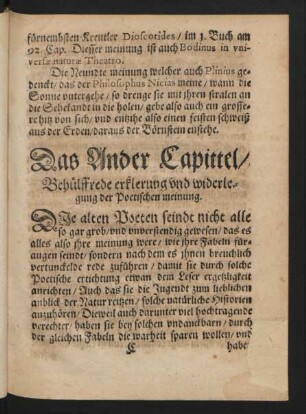 fürnembsten Kreutler Dioscorides / im 1. Buch am
92. Cap. Diesser meinung ist auch Bodinus in vni-
versæ naturæ Theatro.
Die Neundte meinung welcher auch Plinius ge-
denckt / das der Philosophus Nicias meine / wann die
Sonne vntergehe / so drenge sie mit jhren stralen an
die Schelandt in die holen / gebe also auch ein grosse-
re hitz von sich / vnd entzihe also einen feisten schweiß
aus der Erden / daraus der Börnstein entstehe.
Das Ander Capittel /
Behülffrede erklerung vnd widerle-
gung der Poetischen meinung.
DJe alten Poeten seindt nicht alle
so gar grob / vnd vnverstendig gewesen / das es
alles also jhre meinung were / wie jhre Fabeln für-
augen seindt / sondern nach dem es jhnen breuchlich
vertunckelde rede zuführen / damit sie durch solche
Poetische ertichtung etwan dem Leser ergetzligkeit
anrichten / Auch das sie die Jugendt zum lieblichen
anblick der Natur reitzen / solche natürliche Historien
anzuhören / Dieweil auch darunter viel hochtragende
verechter / haben sie bey solchen vndanckbarn / durch
der gleichen Fabeln die warheit sparen wollen / vnd
C habt